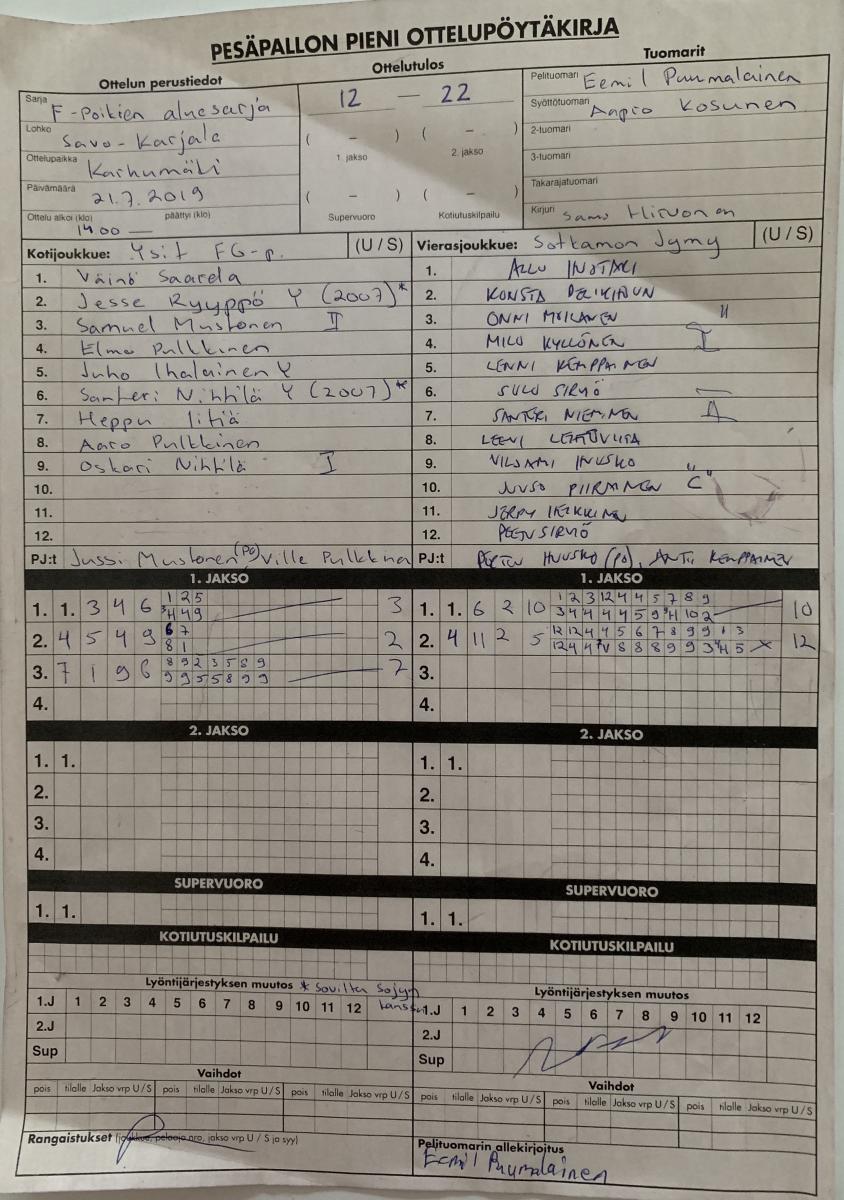 PESÄPALLON PIENI OTTELUPÖYTÄKIRJA
Ottelun perustiedot
Ottelutulos
Tuomarit
Sarja F-Poikien aluesarja
Lohko Savo-Karjala
Ottelupaikka Karhumäki
Päivämäärä 21.7.2019
Ottelu alkoi (klo) 1400 päättyi (klo) —
12 — 22
( - ) ( - )
1. jakso 2. jakso
( - ) ( - )
Supervuoro Kotiutuskilpailu
Pelituomari Eemil Puumalainen
Syöttötuomari Kosunen
2-tuomari
3-tuomari
Takarajatuomari
Kirjuri Samu Hirvonen
Kotijoukkue: Ysit FG-p. (U / S)
1. Väinö Saarela
2. Jesse Ryyppö Y (2007)*
3. Samuel Mustonen II
4. Elmo Pulkkinen
5. Juho Ihalainen Y
6. Santeri Nihtilä Y (2007)*
7. Heppu Iitiä
8. Aaro Pulkkinen
9. Oskari Nihtilä I
10.
11.
12.
PJ:t Jussi Mustonen (PO) Ville Pulkkinen
Vierasjoukkue: Sotkamon Jymy (U / S)
1. ALLU
2. KONSTA
3. ONNI MOILANEN II
4. MILO KYLLÖNEN I
5. LENNI KEMPPAINEN
6. SULO SIRVIÖ
7. SANTERI NIEMINEN
8. LEEVI
9. VILJAMI
10. JUUSO PIIRAINEN "C"
11. HEIKKINEN
12. PEETU SIRVIÖ
PJ:t HUUSKO (PO), ANTTI KEMPPAINEN
1. JAKSO
1. 1. 3 4 6 1 2 5 3
4 4 9
2. 4 5 4 9 6 7 2
8 1
3. 7 1 9 6 8 9 2 3 5 8 9 7
9 9 5 5 8 9 9
4.
1. JAKSO
1. 1. 6 2 10 1 2 3 12 4 4 5 7 8 9 10
3 4 4 4 4 5 9 10 2
2. 4 11 2 5 12 12 4 4 5 6 7 8 9 9 1 3 12
12 4 4 8 8 8 9 9 3 5 x
3.
4.
2. JAKSO
1. 1.
2.
3.
4.
2. JAKSO
1. 1.
2.
3.
4.
SUPERVUORO
1. 1.
SUPERVUORO
1. 1.
KOTIUTUSKILPAILU
KOTIUTUSKILPAILU
Lyöntijärjestyksen muutos * sovittu SoJyn kanssa
1.J 1 2 3 4 5 6 7 8 9 10 11 12
2.J
Sup
Lyöntijärjestyksen muutos
1.J 1 2 3 4 5 6 7 8 9 10 11 12
2.J
Sup
Vaihdot
pois tilalle Jakso vrp U / S pois tilalle Jakso vrp U / S pois tilalle Jakso vrp U / S
Vaihdot
pois tilalle Jakso vrp U / S pois tilalle Jakso vrp U / S pois tilalle Jakso vrp U / S
Rangaistukset (joukkue, pelaaja nro, jakso vrp U / S ja syy)
Pelituomarin allekirjoitus
Eemil Puumalainen